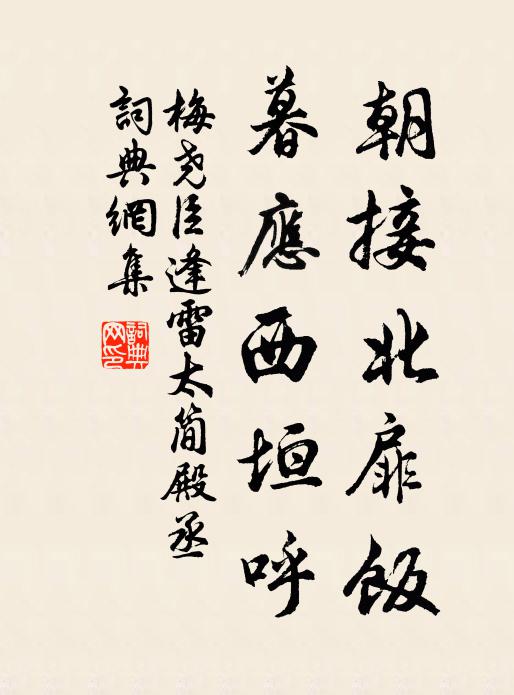 朝接北扉飯
暮應西垣呼
梅堯臣逢雷太簡殿丞
詞典網集
詞典網印